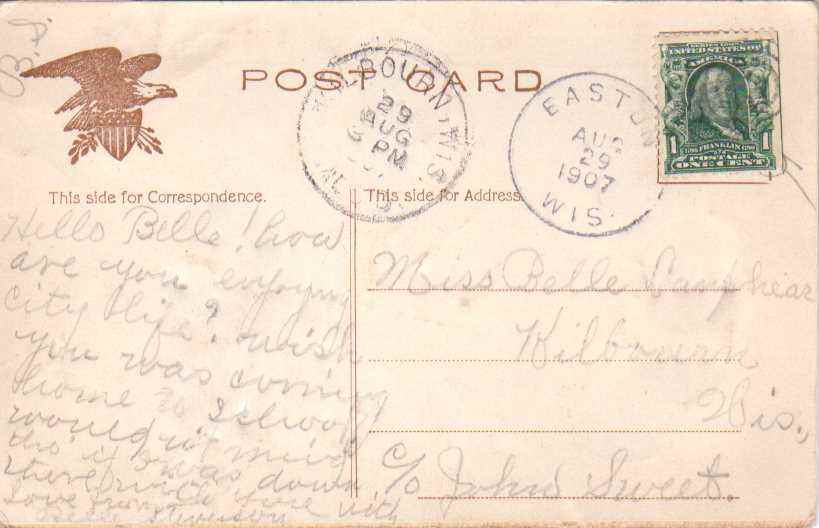 B.P.
POST CARD
KILBOURN, WIS.
29
AUG
PM
EASTON
AUG
29
1907
WIS.
SERIES 1902
UNITED STATES OF
AMERICA
FRANKLIN
1 1
POSTAGE
ONE CENT
This side for Correspondence.
This side for Address.
Hello Belle! how
are you enjoying
city life? wish
you was coming
home to school
wouldn't mind
tho' if I was down
there with you
Love from
Stevenson
Miss Belle Lanphear
Kilbourn
Wis.,
c/o John Sweet.